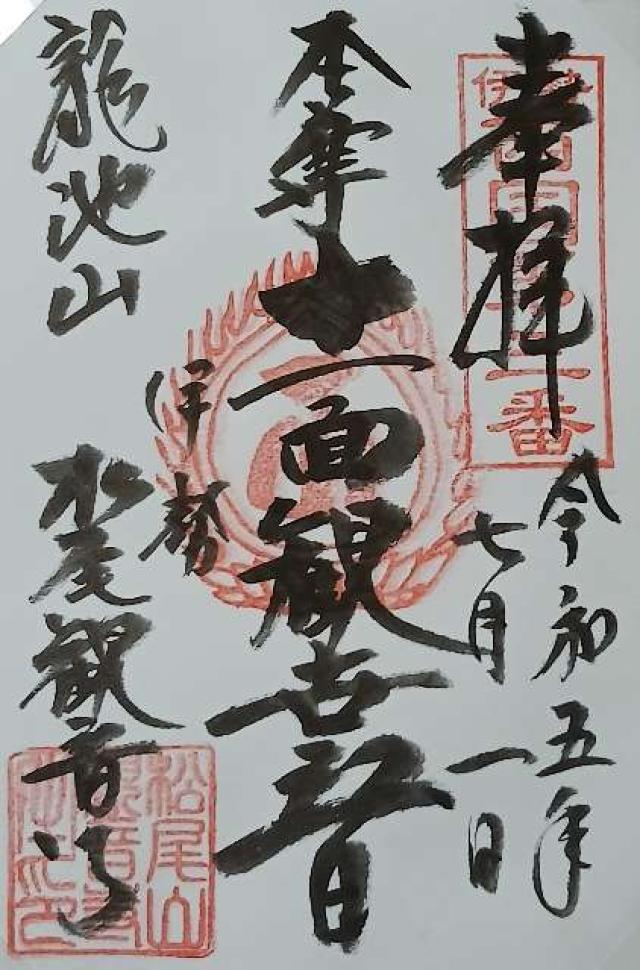 奉拝
伊勢
西国第三番
令和五年
七月一日
本尊十一面観世音
伊勢
龍池山
松尾観音寺
松尾山
観音寺